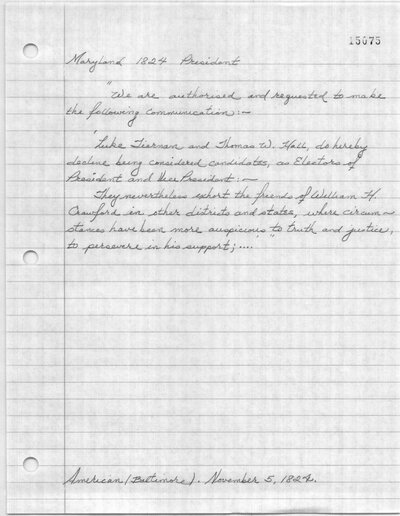 15075
Maryland 1824 President
"We are authorised and requested to make
the following communication:—
'Luke Tiernan and Thomas W. Hall, do hereby
decline being considered candidates, as Electors of
President and Vice President:—
They nevertheless exhort the friends of William H.
Crawford in other districts and states, where circum-
stances have been more auspicious to truth and justice,
to persevere in his support;....'"
American (Baltimore). November 5, 1824.